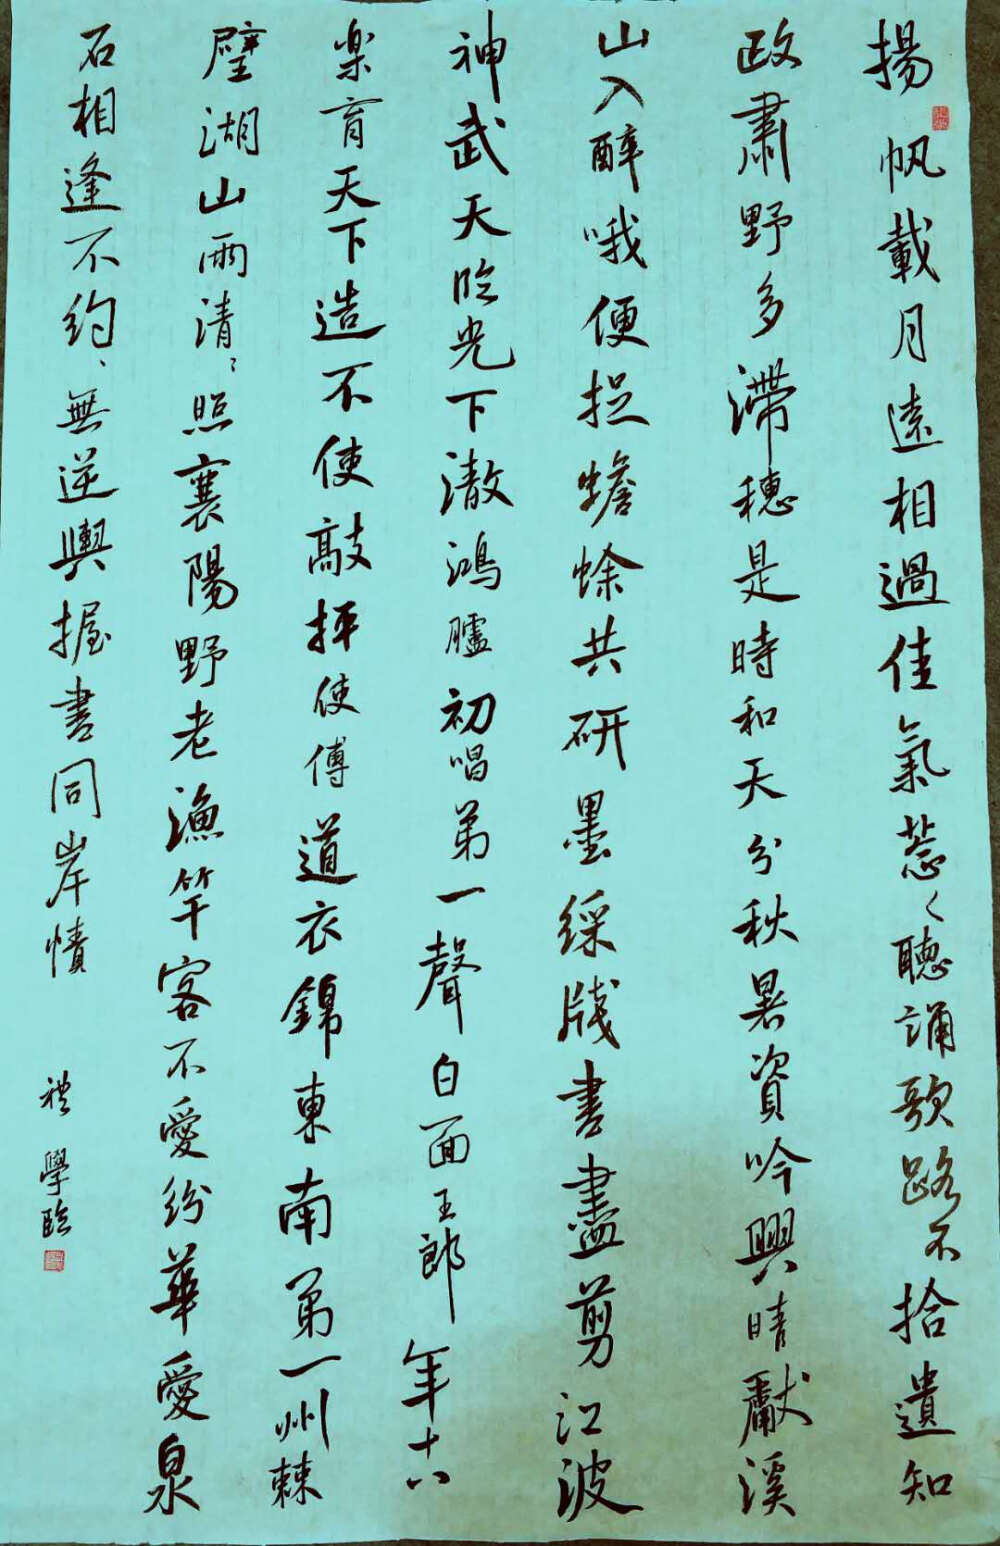 揚帆載月遠相過佳氣蔥〻聽誦歌路不拾遺知
政肅野多滯穗是時和天分秋暑資吟興晴獻溪
山入醉哦便捉蟾蜍共研墨綵牋書盡剪江波
神武天臨光下澈鴻臚初唱第一聲白面王郎年十八
楽育天下造不使敲抨使傅道衣錦東南第一州棘
壁湖山兩清〻照襄陽野老漁竿客不愛紛華愛泉
石相逢不約〻無逆輿握書同岸幘
禮學臨